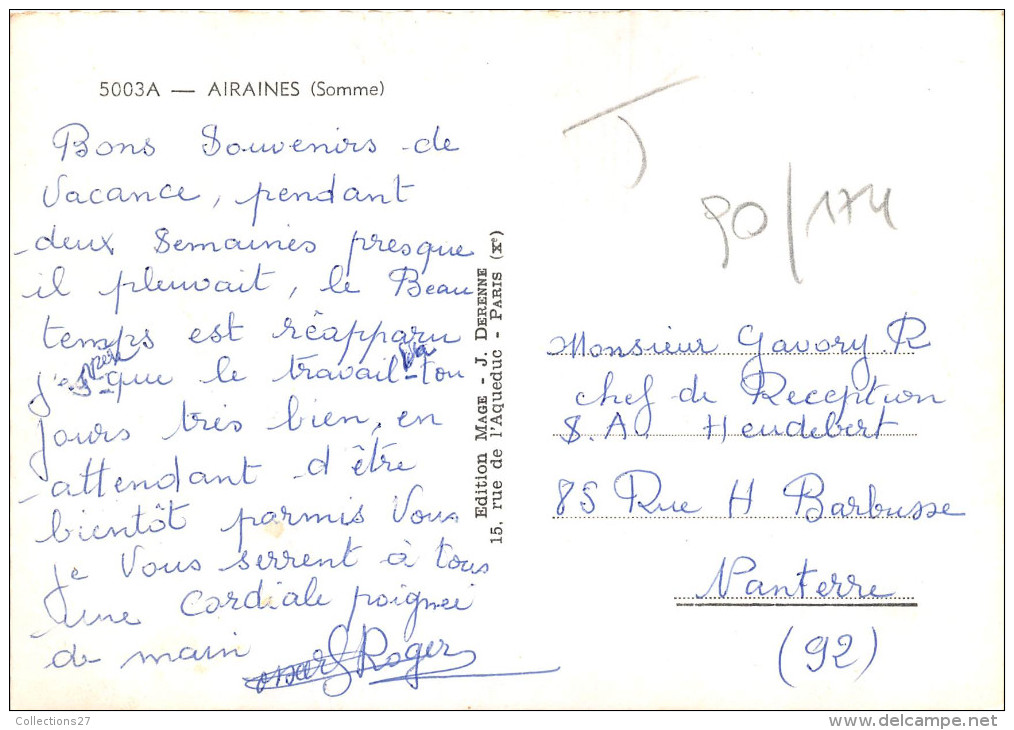 5003A — AIRAINES (Somme)
Bons Souvenirs de
Vacance, pendant
deux Semaines presque
il pleuvait, le Beau
temps est réapparu
j'espère que le travail va tou
jours très bien, en
attendant d'être
bientôt parmis Vous
je Vous serrent à tous
une Cordiale poignée
de main
Roger
Edition MAGE - J. DERENNE
15, rue de l'Aqueduc - PARIS (Xe)
J
90/174
Monsieur Gavory R
chef de Réception
S.A. Heudebert
85 Rue H Barbusse
Nanterre
(92)
Collections27
delcampe.net